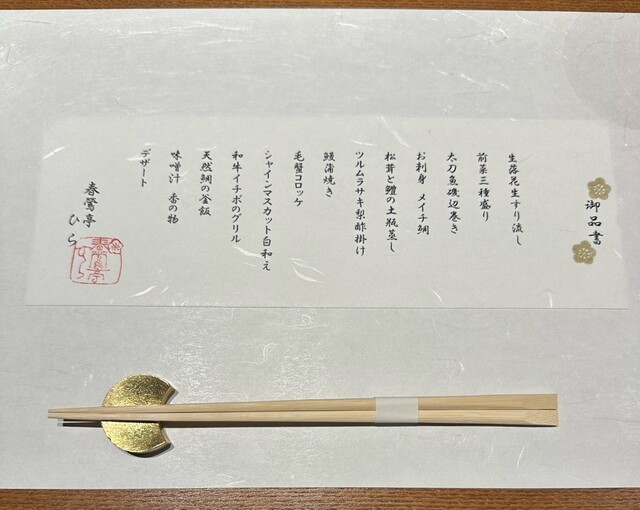 御品書
生落花生すり流し
前菜三種盛り
太刀魚磯辺巻き
お刺身 メイチ鯛
松茸と鱧の土瓶蒸し
ツルムラサキ梨酢掛け
鰻蒲焼き
毛蟹コロッケ
シャインマスカット白和え
和牛イチボのグリル
天然鯛の釜飯
味噌汁 香の物
デザート
春鶯亭
ひら